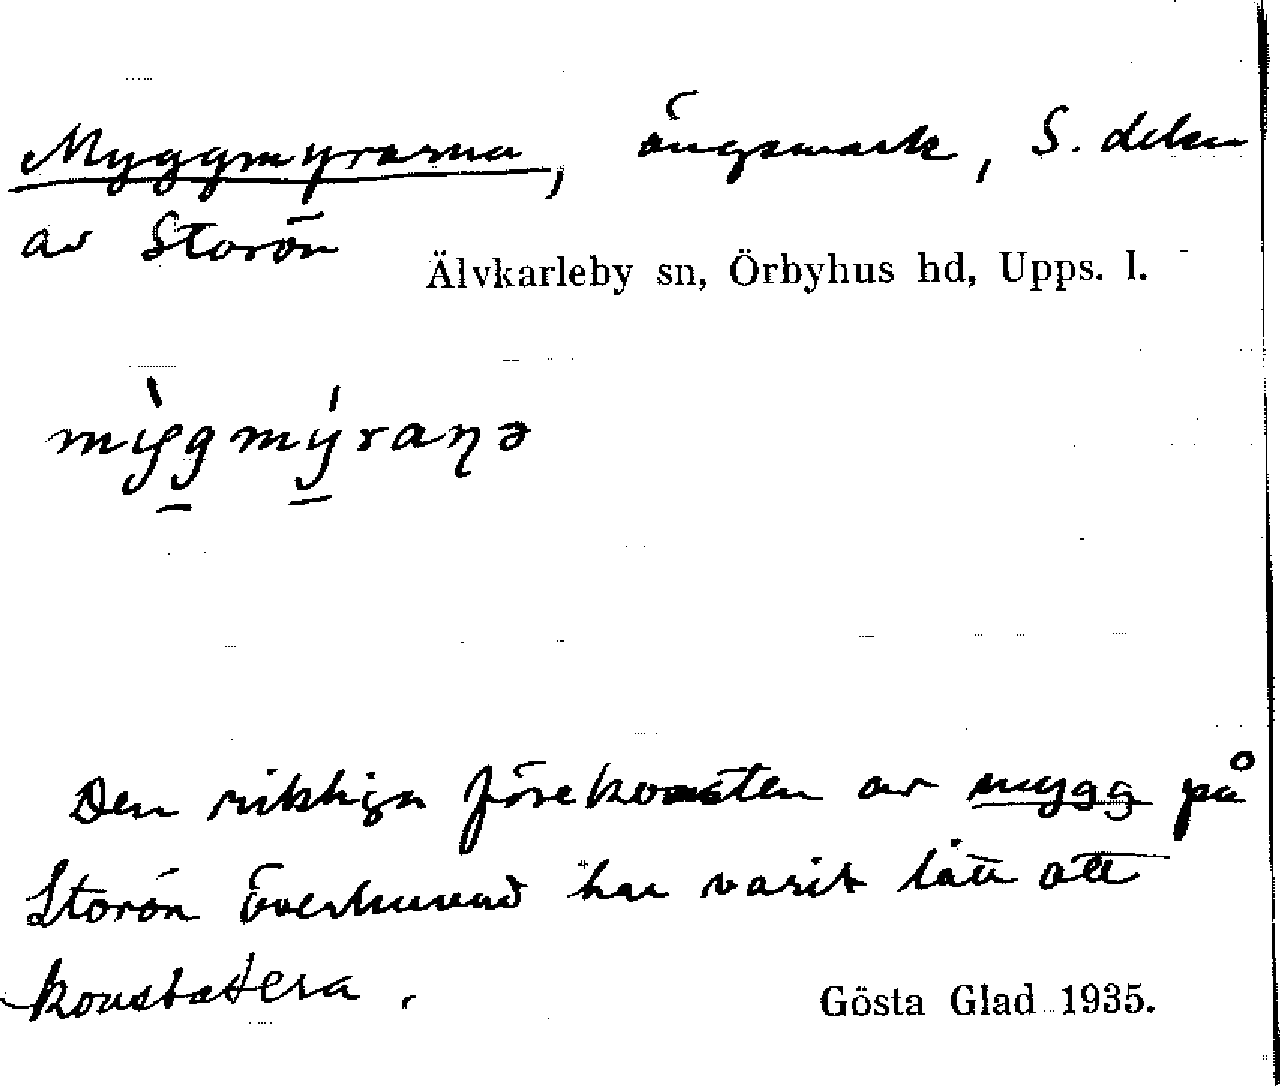 Myggmyrarna, ängsmark, S. delen
av Storön
Älvkarleby sn, Örbyhus hd, Upps. l.
mỳgmýraƞə
Den rikliga förekomsten av mygg på
Storön överhuvud har varit lätt att
konstatera.
Gösta Glad 1935.